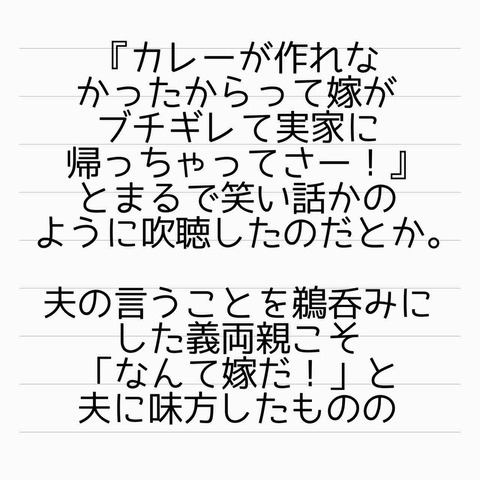 『カレーが作れな
かったからって嫁が
ブチギレて実家に
帰っちゃってさー！』
とまるで笑い話かの
ように吹聴したのだとか。
夫の言うことを鵜呑みに
した義両親こそ
「なんて嫁だ！」と
夫に味方したものの